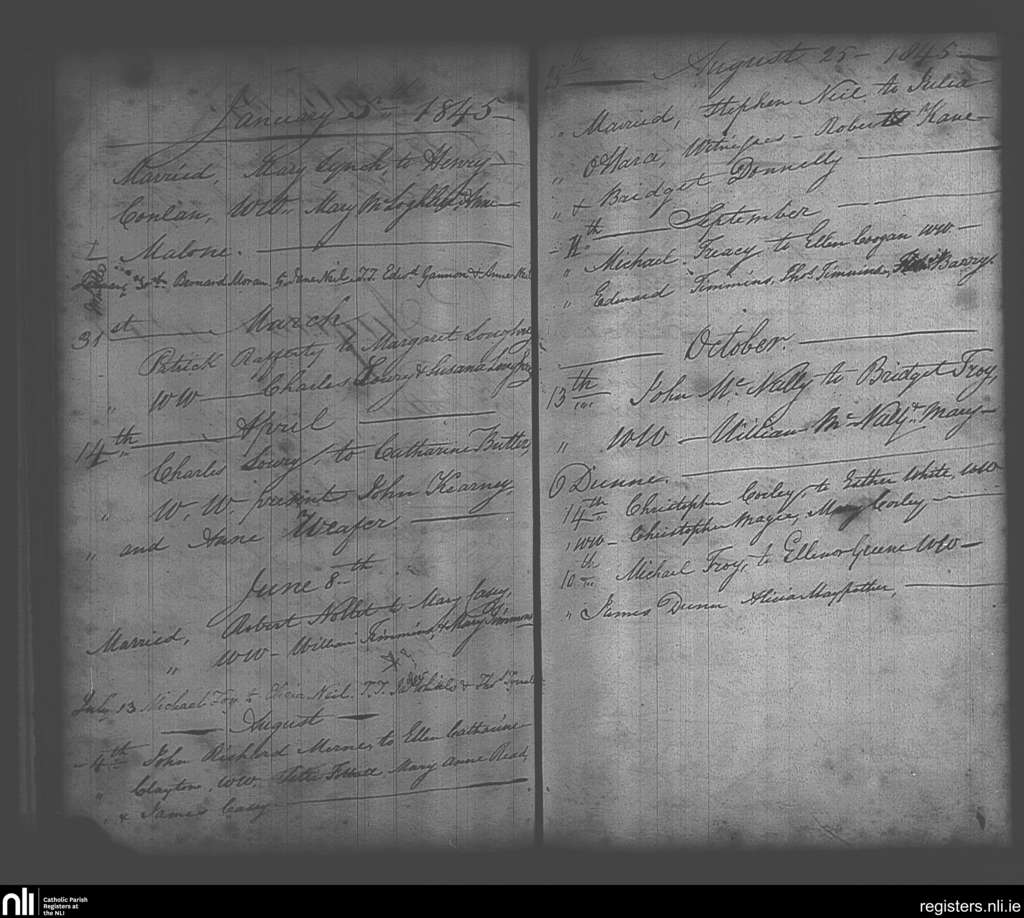 January 5th 1845
Married, Mary Lynch, to Henry
Conlan, WW. Mary McLoghlin & Anne
Malone.
30th Bernard Moran to Anne Neil T.T. Edwd. Gannon & Anne Neil
31st March
Patrick Rafferty to Margaret Loughrey
" WW Charles Lowry & Susana Loughrey
14th April
Charles Lowry, to Catharine Butler,
" W, W. present John Kearney,
" and Anne Weafer
June 8th
Married, Robert Nollet to Mary Casey,
" WW - William Timmins, & Mary Timmons
July 13 Michael Foy to Elicia Neil. T.T. Shields & Thos.
August
4th John Richford Merne, to Ellen Catharine
" Clayton, WW, Peter Mary Anne Read,
" & James Casey
25th August 25 - 1845
" Married, Stephen Neil to Julia
" O'Hara, Witnesses - Robert Kane
" & Bridget Donnelly
11th September
" Michael Treacy to Ellen Coogan WW -
" Edward Timmins, Thos. Timmins, Barry,
October.
13th John Mc.Nally to Bridget Troy,
" WW - William Mc.Nally & Mary
O Dunne.
14th Christopher Corley, to Esther White, WW
" WW - Christopher Magee, Mary Corley
10th Michael Troy, to Ellenor Greene WW -
" James Dunn Alicia Maypother,
nli
Catholic Parish
Registers at
the NLI
registers.nli.ie